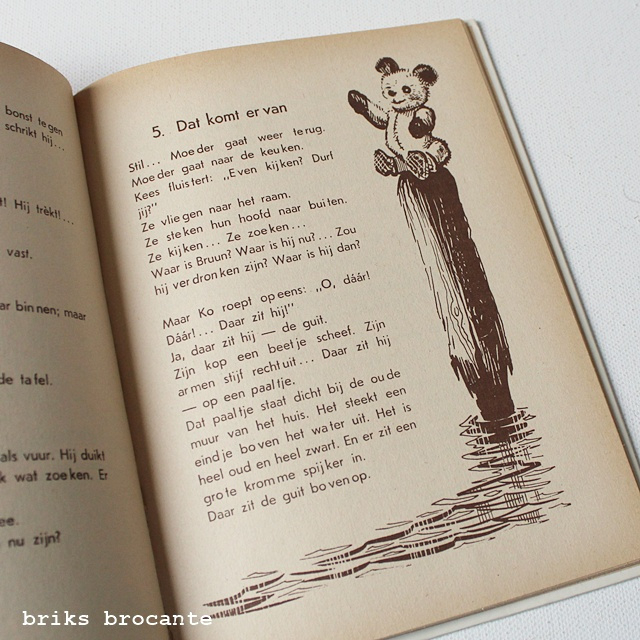 bonst tegen
schrikt hij...
t! Hij trèkt!...
vast.
ar binnen; maar
de tafel.
als vuur. Hij duikt
k wat zoeken. Er
ee.
nu zijn?
5. Dat komt er van
Stil... Moeder gaat weer terug.
Moeder gaat naar de keuken.
Kees fluistert: „Even kijken? Durf
jij?"
Ze vliegen naar het raam.
Ze steken hun hoofd naar buiten.
Ze kijken... Ze zoeken...
Waar is Bruun? Waar is hij nu?... Zou
hij verdronken zijn? Waar is hij dan?
Maar Ko roept opeens: „O, dáár!
Dáár!... Daar zit hij!"
Ja, daar zit hij — de guit.
Zijn kop een beetje scheef. Zijn
armen stijf rechtuit... Daar zit hij
— op een paaltje.
Dat paaltje staat dicht bij de oude
muur van het huis. Het steekt een
eindje boven het water uit. Het is
heel oud en heel zwart. En er zit een
grote kromme spijker in.
Daar zit de guit bovenop.
briks brocante